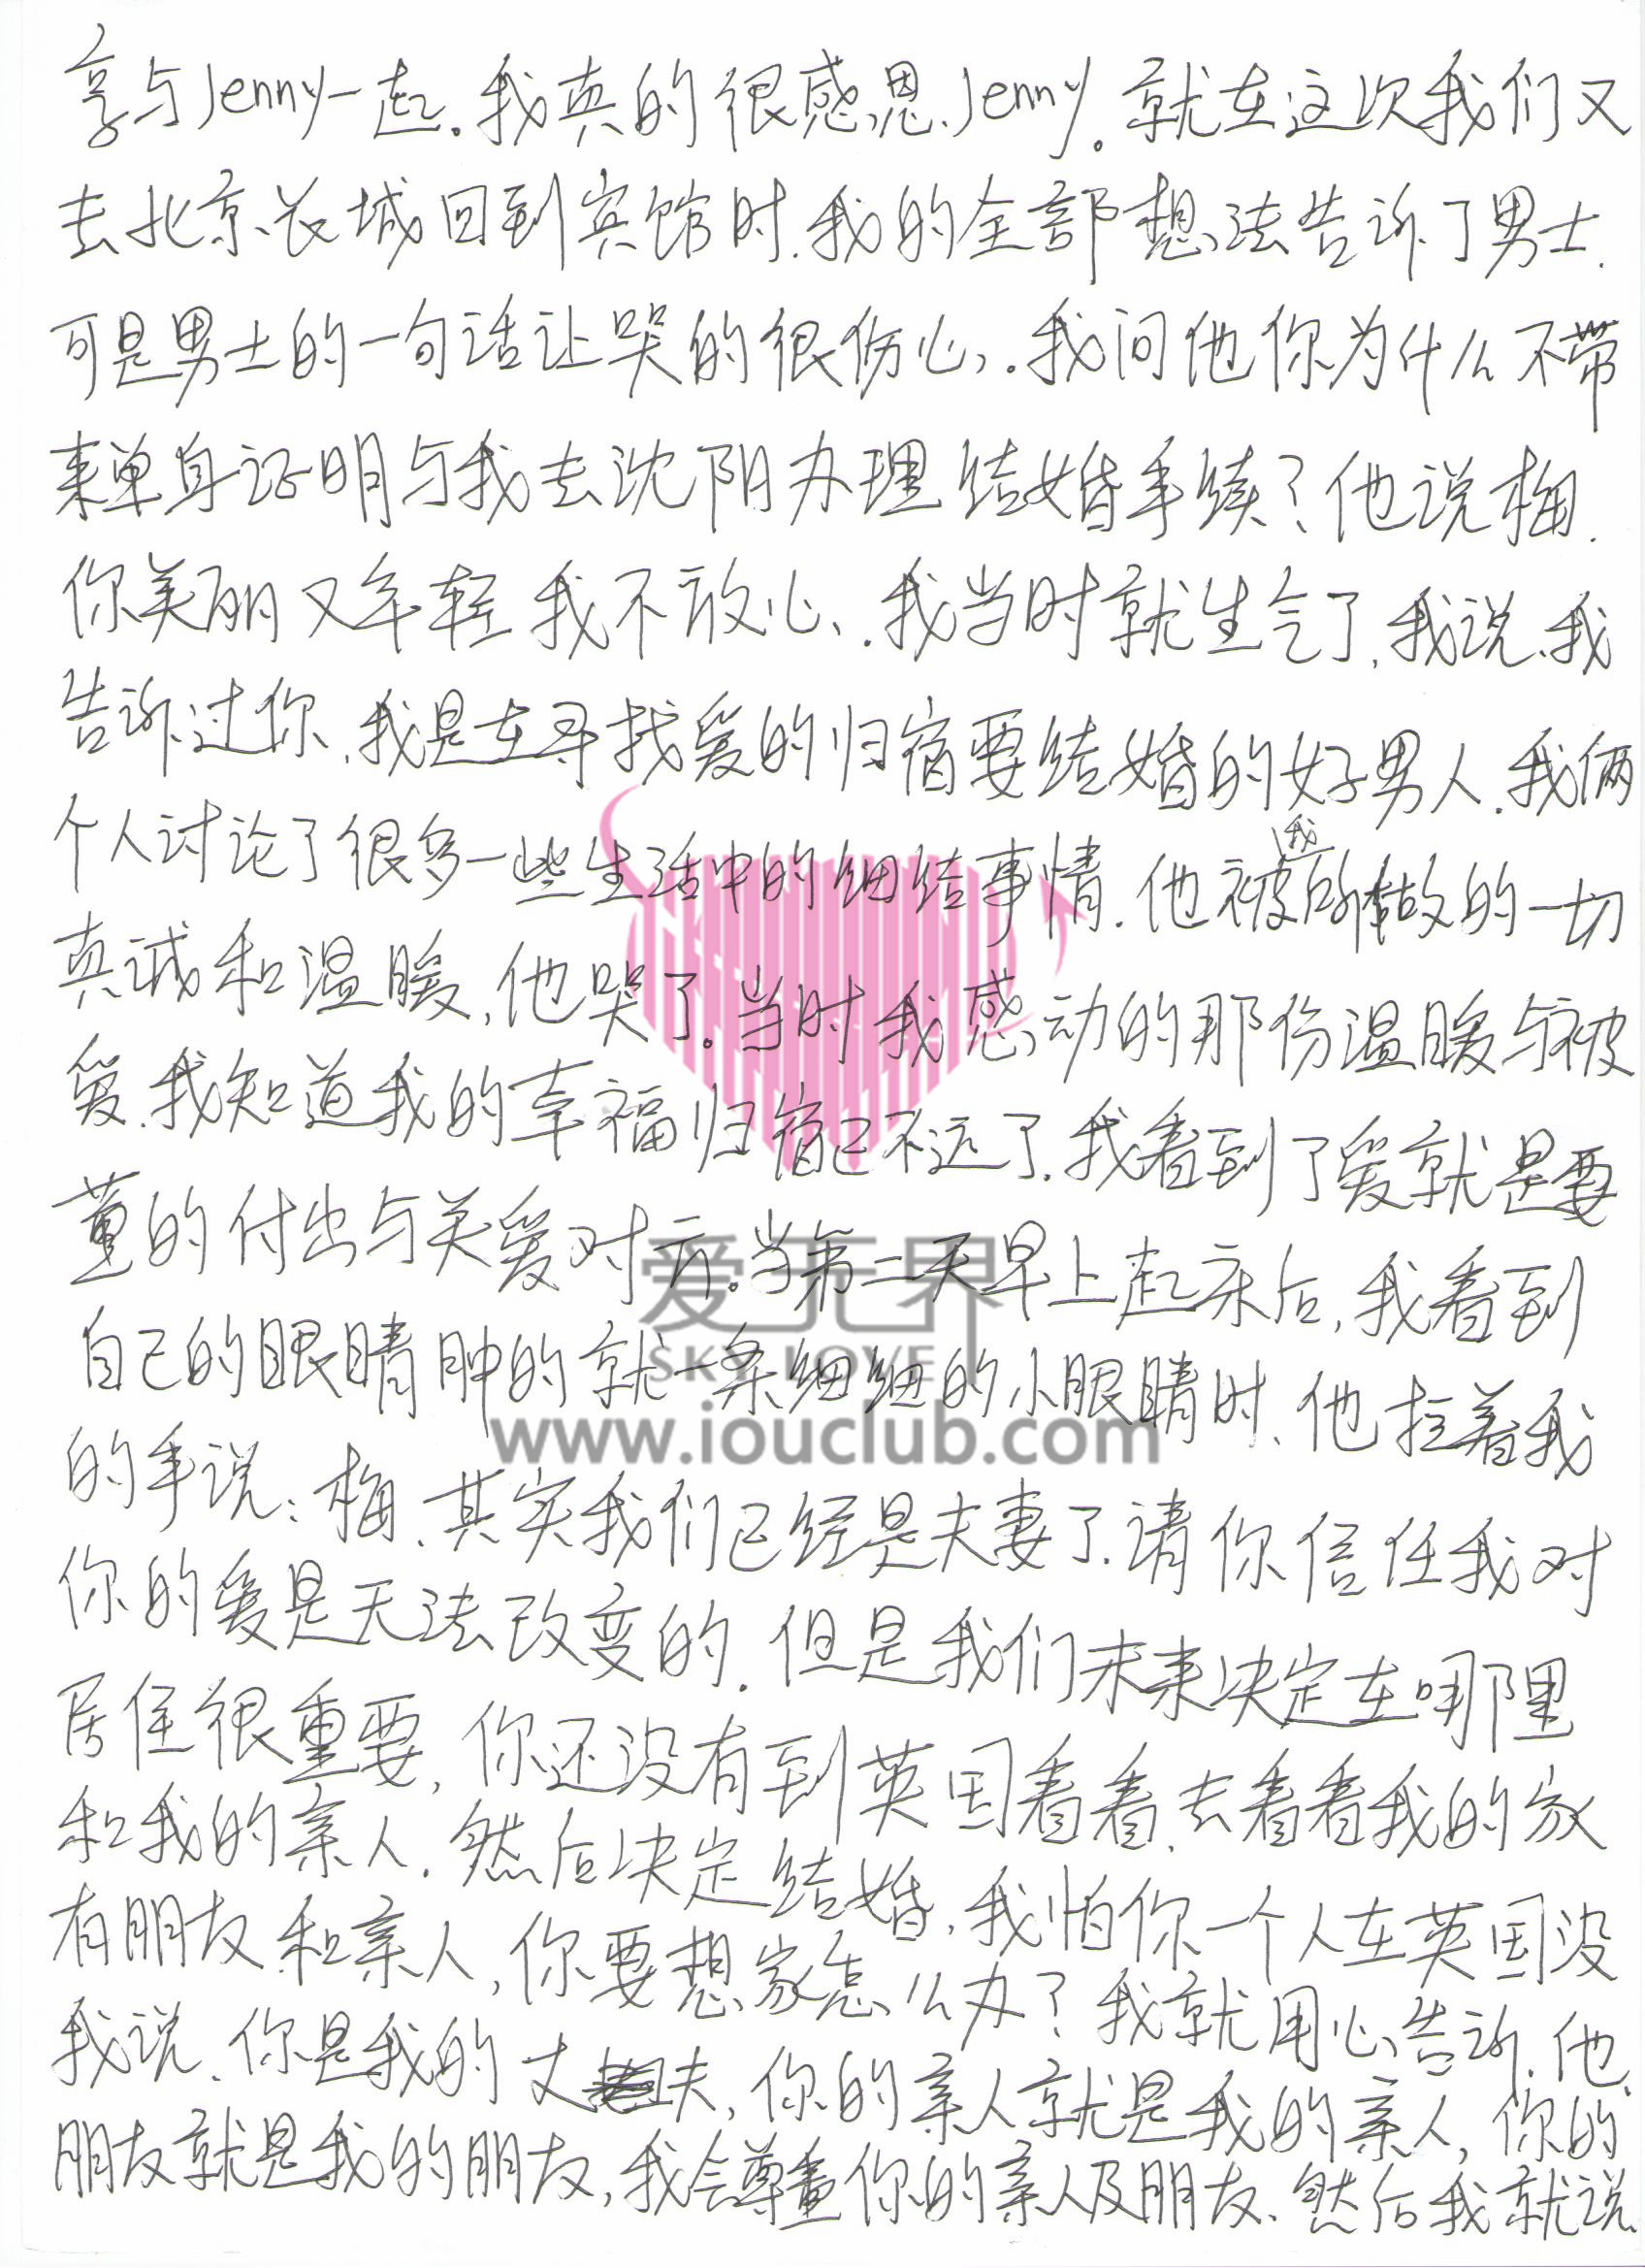 享与Jenny一起。我真的很感恩Jenny。就在这次我们又
去北京、长城回到宾馆时.我的全部想法告诉了男士.
可是男士的一句话让哭的很伤心.我问他你为什么不带
来单身证明与我去沈阳办理结婚手续?他说梅.
你美丽又年轻我不敢心.我当时就生气了,我说.我
告诉过你.我是在寻找爱的归宿要结婚的好男人.我俩
个人讨论了很多一些生活中的细结事情.他被我所做的一切
真诚和温暖,他哭了。当时我感动的那份温暖与被
爱.我知道我的幸福归宿已不远了.我看到了爱就是要
的付出与关爱对方。当第二天早上起床后,我看到
自己的眼睛肿的就一条细细的小眼睛时、他拉着我
的手说:梅.其实我们已经是夫妻了.请你信任我对
你的爱是无法改变的.但是我们未来决定在哪里
居住很重要,你还没有到英国看看.去看看我的家
和我的亲人.然后决定结婚,我怕你一个人在英国没
有朋友和亲人,你要想家怎么办?我就用心告诉.他
我说.你是我的丈夫,你的亲人就是我的亲人,你的
朋友就是我的朋友,我会尊重你的亲人及朋友.然后我就说.
爱无界
SKY LOVE
www.iouclub.com